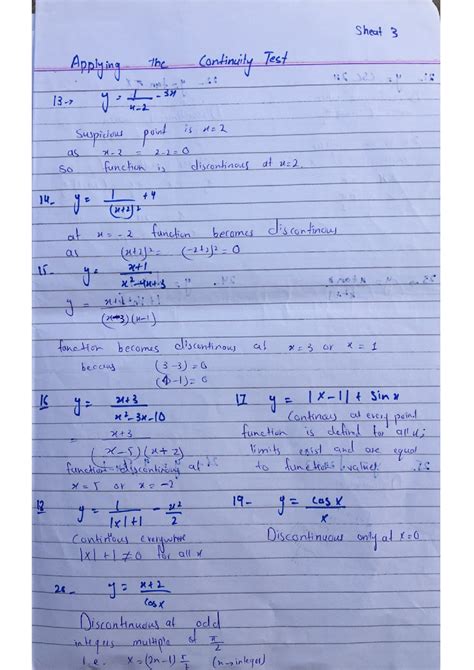 Sheat 3
Applying the Continuity Test
13→ y = 1/(x-2) - 3x
Suspicious point is x=2
as x-2 = 2-2=0
So function is discontinous at x=2.
14- y = 1/(x+2)² + 4
at x = -2 function becomes discontinous
as (x+2)² = (-2+2)² = 0
15- y = x+1/x²-4x+3
y = x+1/(x-3)(x-1)
function becomes discontinous at x=3 or x=1
(3-3)=0
(1-1)=0
16 y = x+3/x²-3x-10
= x+3/(x-5)(x+2)
function discontinous at
x=5 or x=-2
17 y = |x-1| + Sin x
Continous at every point
function is defind for all x;
limits exist and are equal
to function values
18 y = 1/(|x|+1) - x²/2
Continous everywhere
|x|+1≠0 for all x
19- y = cosx/x
Discontinuous only at x=0
20- y = x+2/cosx
Discontinuous at odd
integers multiple of π/2
i.e. x = (2n-1)π/2 (n→integer)